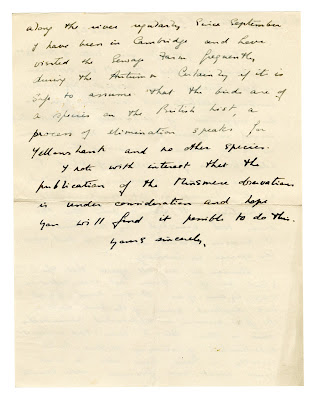 along the river regularly since September
I have been in Cambridge and have
visited the Sewage Farm frequently
during the Autumn. Certainly if it is
safe to assume that the birds are of
a species on the British list, a
process of elimination speaks for
Yellowshank and no other species.
I note with interest that the
publication of the Minsmere observations
is under consideration and hope
you will find it possible to do this.
Yours sincerely,